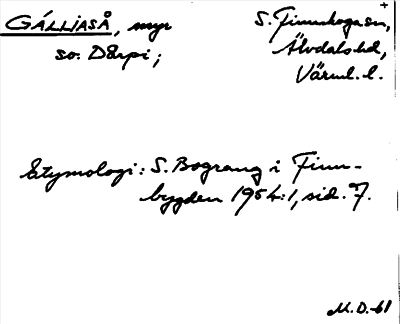 GÁLLIASÅ, myr
so. Dérpi;
S. Finnskoga sn,
Älvdals hd,
Värml. l.
Etymologi: S. Bograng i Finn-
bygden 1954:1, sid. 7.
M.D.-61